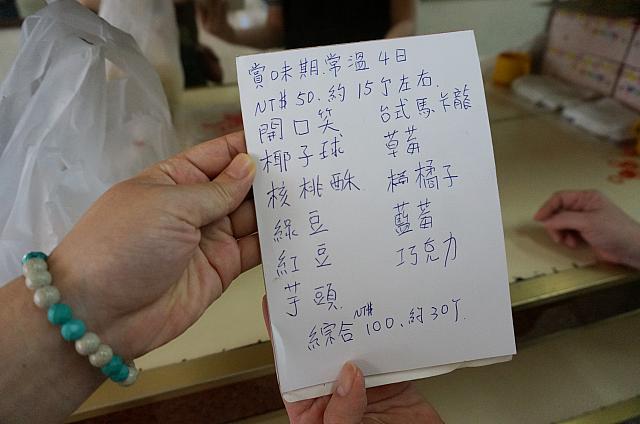 賞味期.常溫4日
NT$50.約15个左右.
開口笑 台式馬卡龍
椰子球 草莓
核桃酥 橘子
綠豆 藍莓
紅豆 巧克力
芋頭
綜合 NT$100、約30个.